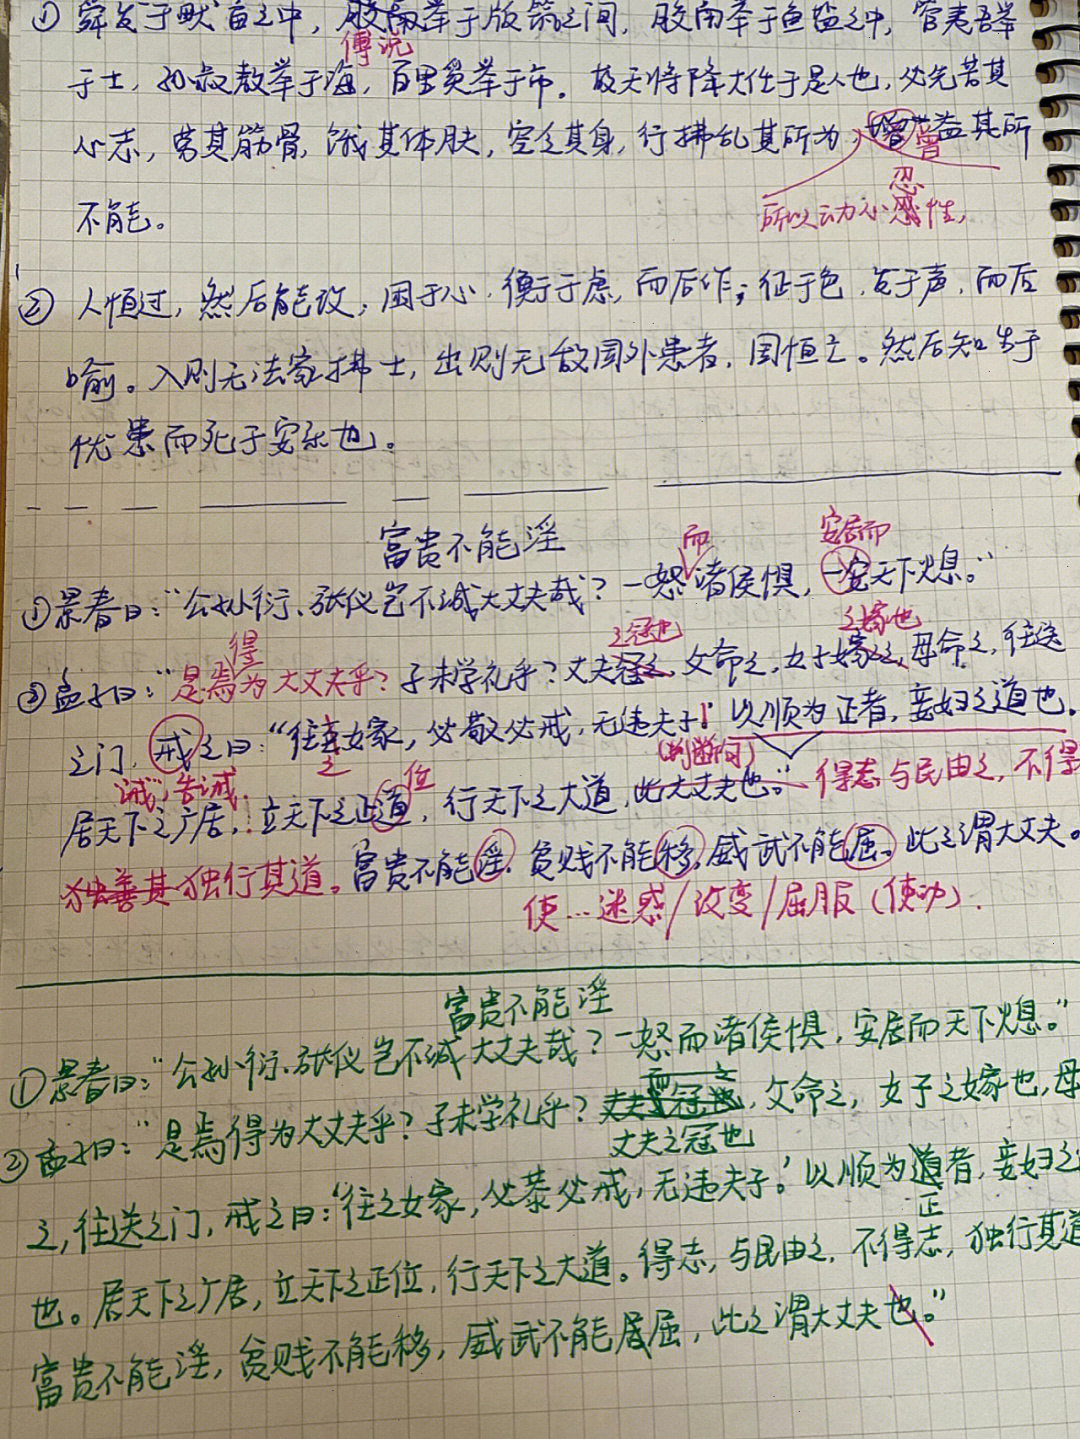 ① 舜发于畎亩之中，胶鬲举于版筑之间，胶鬲举于鱼盐之中，管夷吾举
傅说
于士，孙叔敖举于海，百里奚举于市。故天将降大任于是人也，必先苦其
心志，劳其筋骨，饿其体肤，空乏其身，行拂乱其所为，增益其所
曾
忍
所以动心忍性，
不能。
② 人恒过，然后能改；困于心，衡于虑，而后作；征于色，发于声，而后
喻。入则无法家拂士，出则无敌国外患者，国恒亡。然后知生于
忧患而死于安乐也。
富贵不能淫
而
安居而
①景春曰："公孙衍、张仪岂不诚大丈夫哉？一怒诸侯惧，一安天下熄。"
得
之冠也
之嫁也
②孟子曰："是焉为大丈夫乎？子未学礼乎？丈夫冠之，父命之，女子嫁之，母命之，往送
之门，戒之曰："往女家，必敬必戒，无违夫子！'以顺为正者，妾妇之道也。
之
(判断句)
"诫"，告诫。
位
得志与民由之，不得
居天下之广居，立天下之正道，行天下之大道，此大丈夫也。"
独善其独行其道。富贵不能淫，贫贱不能移，威武不能屈。此之谓大丈夫。
使…迷惑/改变/屈服（使动）.
富贵不能淫
①景春曰："公孙衍、张仪岂不诚大丈夫哉？一怒而诸侯惧，安居而天下熄。"
②孟子曰："是焉得为大丈夫乎？子未学礼乎？丈夫之冠也，父命之，女子之嫁也，母
丈夫之冠也
之，往送之门，戒之曰：'往之女家，必恭必戒，无违夫子。'以顺为道者，妾妇之
正
也。居天下之广居，立天下之正位，行天下之大道。得志，与民由之，不得志，独行其道
富贵不能淫，贫贱不能移，威武不能屈，此之谓大丈夫也。"